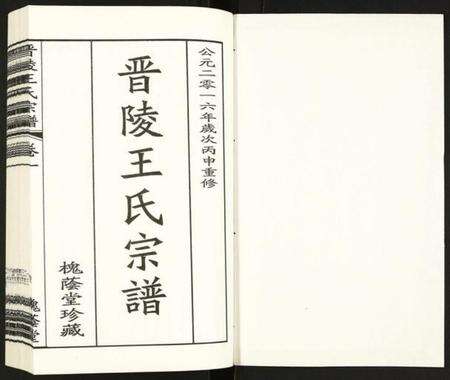 公元二零一六年歲次丙申重修
晋陵王氏宗譜
槐蔭堂珍藏
晋陵王氏宗譜
卷一
槐蔭堂